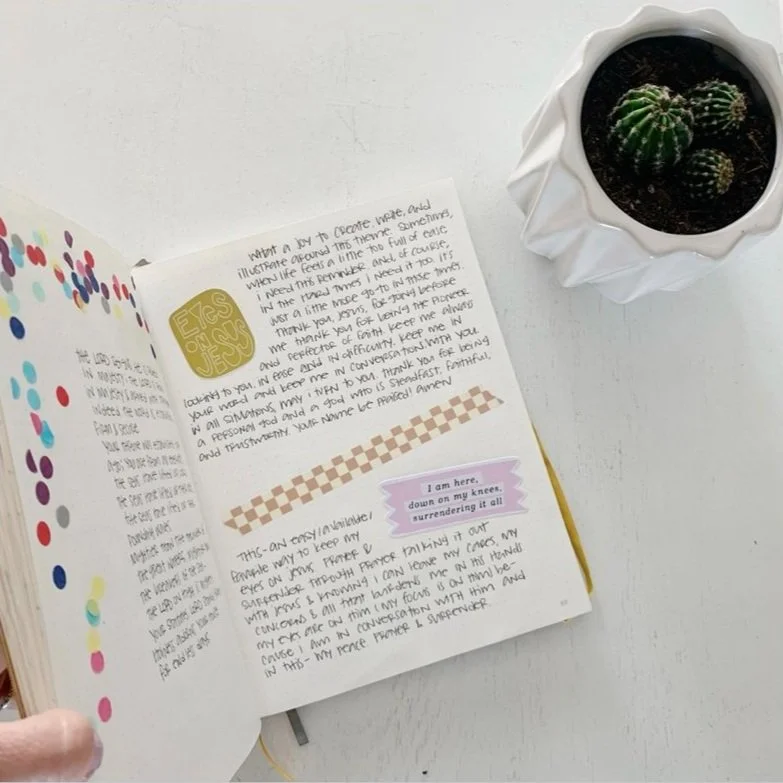 THE LORD reigns, He is robed
in majesty. The LORD is robed
in majesty & armed with strength.
Indeed, the world is established,
firm & secure.
Your throne was established long
ago; you are from all eternity.
The seas have lifted up, LORD,
the seas have lifted up their voice;
the seas have lifted up their
pounding waves.
Mightier than the thunder of
the great waters, mightier than
the breakers of the sea—
the LORD on high is mighty.
Your statutes, LORD, stand firm;
holiness adorns your house
for endless days.
WHAT A JOY TO CREATE, WRITE, AND
ILLUSTRATE AROUND THIS THEME. SOMETIMES,
WHEN LIFE FEELS A LITTLE TOO FULL OF EASE
I NEED THIS REMINDER AND OF COURSE,
IN THE HARD TIMES I NEED IT TOO. IT'S
JUST A LITTLE MORE GO-TO IN THOSE TIMES.
THANK YOU, JESUS, FOR GOING BEFORE
ME. THANK YOU FOR BEING THE PIONEER
AND PERFECTOR OF FAITH. KEEP ME ALWAYS
LOOKING TO YOU, IN EASE AND IN DIFFICULTY. KEEP ME IN
YOUR WORD AND KEEP ME IN CONVERSATION WITH YOU.
IN ALL SITUATIONS, MAY I TURN TO YOU. THANK YOU FOR BEING
A PERSONAL GOD AND A GOD WHO IS STEADFAST, FAITHFUL,
AND TRUSTWORTHY. YOUR NAME BE PRAISED! AMEN
EYES
ON
JESUS
I am here,
down on my knees,
surrendering it all
THIS - AN EASY/AVAILABLE/
FAVORITE WAY TO KEEP MY
EYES ON JESUS. PRAYER &
SURRENDER THROUGH PRAYER. TALKING IT OUT
WITH JESUS & KNOWING I CAN LEAVE MY CARES, MY
CONCERNS & ALL THAT BURDENS ME IN HIS HANDS.
MY EYES ARE ON HIM (MY FOCUS IS ON HIM) BE-
CAUSE I AM IN CONVERSATION WITH HIM AND
IN THIS - MY PEACE. PRAYER & SURRENDER.